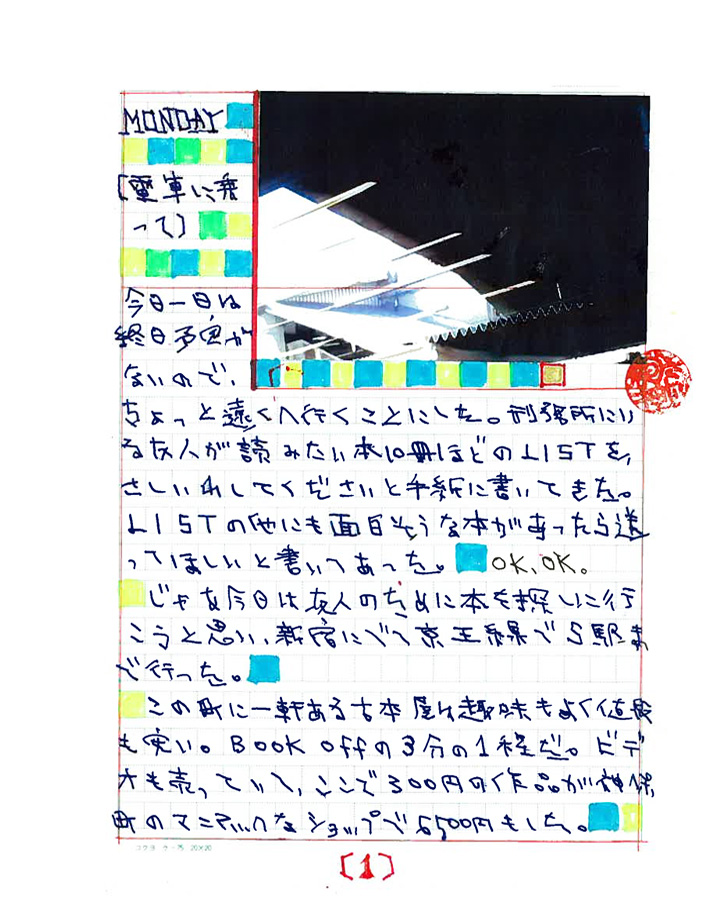 MONDAY
[電車に乗
って]
今日一日は
終日予定が
ないので、
ちょっと遠くへ行くことにした。刑務所にい
る友人が読みたい本10冊ほどのLISTを、
さしいれしてくださいと手紙に書いてきた。
LISTの他にも面白そうな本があったら送
ってほしいと書いてあった。 OK、OK。
じゃあ今日は友人のために本を探しに行
こうと思い、新宿にでて京王線でS駅ま
で行った。
この町に一軒ある古本屋は趣味もよく値段
も安い。BOOK offの3分の1程だ。ビデ
オも売っていて、ここで300円の作品が神保
町のマニアックなショップで6500円もした。
コクヨ ケ-75 20×20
[1]